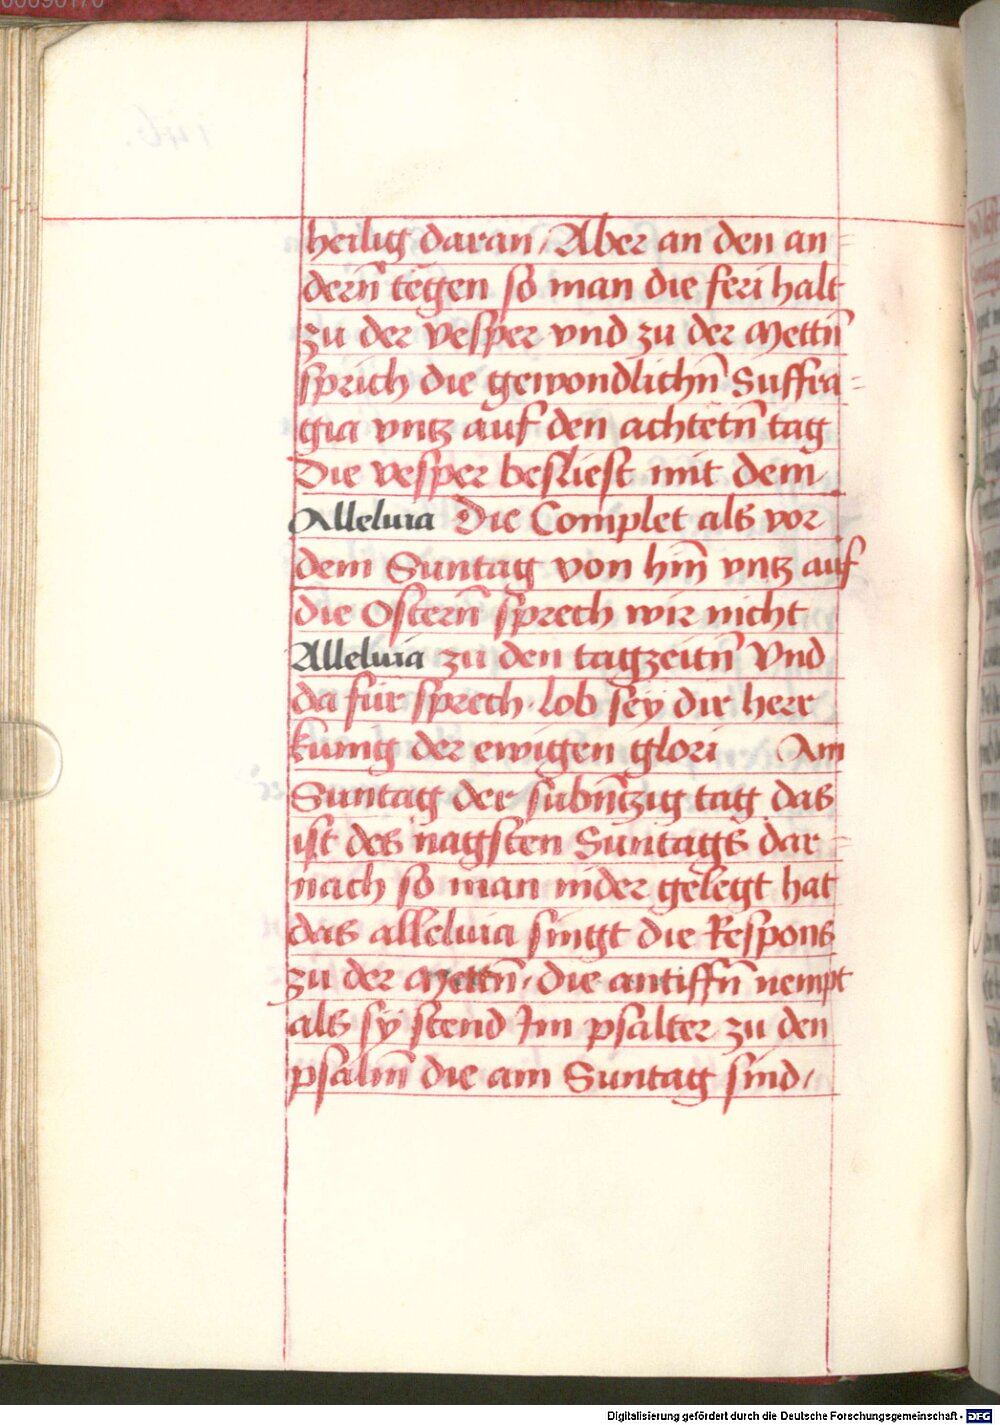 heilig daran / Aber an den an=
dern̄ tegen so man die feri halt
zu der vesper vnd zu der Mettn̄
sprich die gewondlichn̄ Suffra=
gia vntz auf den achtetn̄ tag
Die vesper besliest mit dem
Alleluia Die Complet als vor
dem Suntag von hin̄ vntz auf
die Ostern̄ sprech wir nicht
Alleluia zu den tagzeitn̄ Vnd
da für sprech lob sey dir herr
kunig der ewigen glori Am
Suntag der subn̄tzig tag das
ist des nagsten Suntags dar=
nach so man nider gelegt hat
das alleluia singt die Respons
zu der Mettn̄ / die antiffn̄ nempt
als sy stend Im psalter zu den
psalm̄ die am Suntag sind /
Digitalisierung gefördert durch die Deutsche Forschungsgemeinschaft - DFG